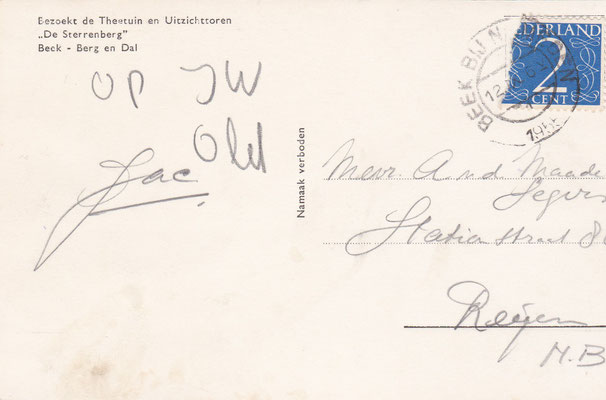 Bezoekt de Theetuin en Uitzichttoren
„De Sterrenberg"
Beek - Berg en Dal
OP JW
Jac
Namaak verboden
NEDERLAND
2
CENT
BEEK BIJ N
Mevr. A. v. d. Maade
Segers
Statie straat 8
Reijen
N.B